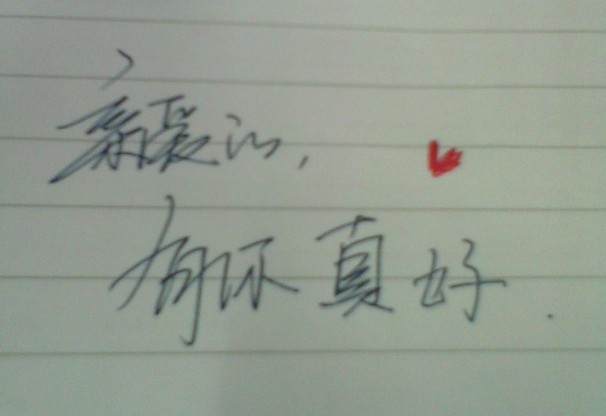 亲爱的,
有你真好.